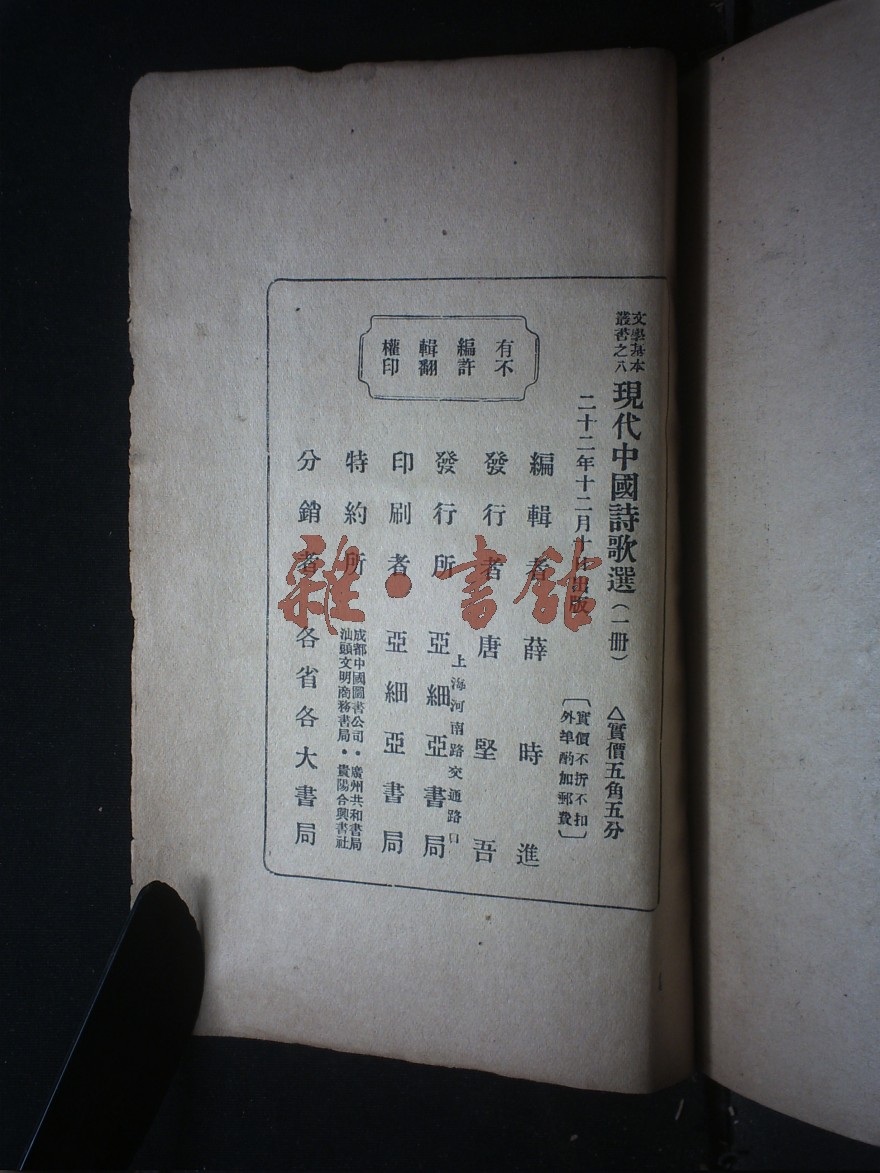 文學基本
叢書之八
現代中國詩歌選（一册）
△實價五角五分
二十二年十二月十日出版
〔實價不折不扣
外埠酌加郵費〕
編輯者 薛時進
發行者 唐堅吾
上海河南路交通路口
發行所 亞細亞書局
印刷者 亞細亞書局
特約所
成都中國圖書公司・廣州共和書局
汕頭文明商務書局・貴陽合興書社
分銷者 各省各大書局
有編輯權
不許翻印
雜・書館